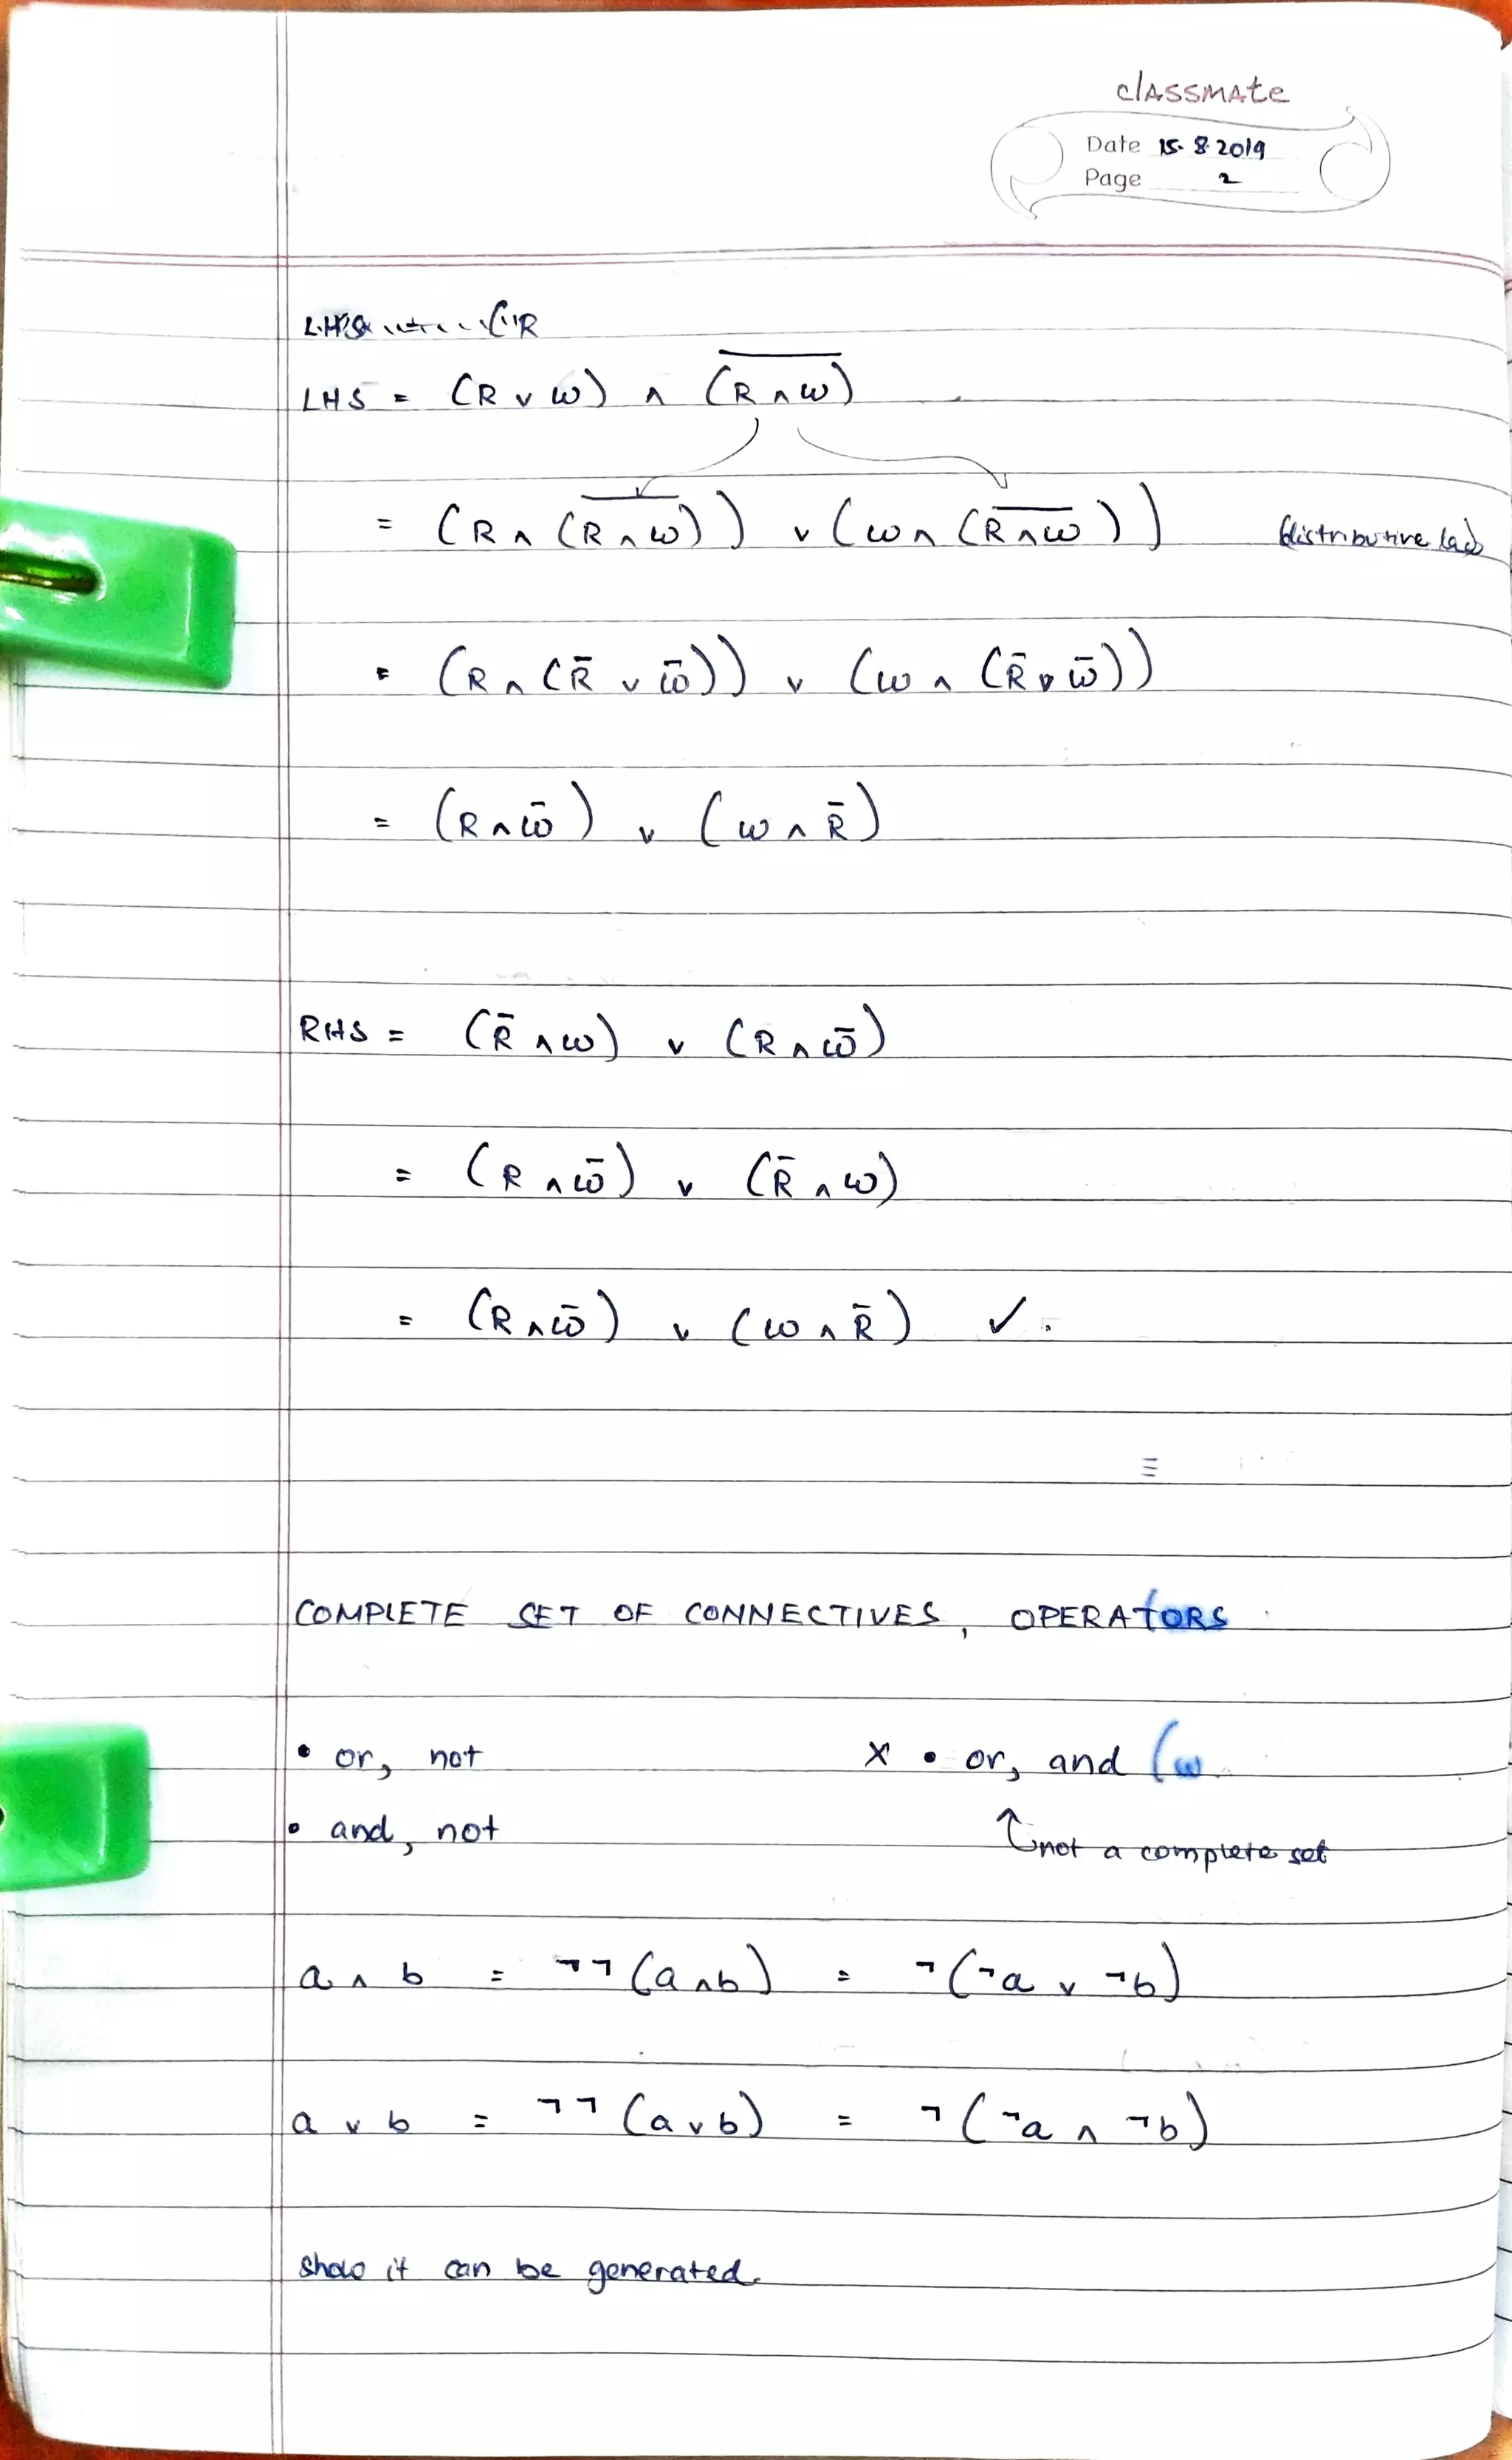 classmate
Date 15.8.2019
Page 2
LHS = (R ∨ ω) ∧ (R̅ ̅∧̅ ̅ω̅)
= (R ∧ (R̅ ̅∧̅ ̅ω̅)) ∨ (ω ∧ (R̅ ̅∧̅ ̅ω̅)) (distributive law)
= (R ∧ (R̄ ∨ ω̄)) ∨ (ω ∧ (R̄ ∨ ω̄))
= (R ∧ ω̄) ∨ (ω ∧ R̄)
RHS = (R̄ ∧ ω) ∨ (R ∧ ω̄)
= (R ∧ ω̄) ∨ (R̄ ∧ ω)
= (R ∧ ω̄) ∨ (ω ∧ R̄) ✓.
COMPLETE SET OF CONNECTIVES, OPERATORS
• or, not X • or, and (ω
• and, not ↑ not a complete set
a ∧ b = ¬¬(a ∧ b) = ¬(¬a ∨ ¬b)
a ∨ b = ¬¬(a ∨ b) = ¬(¬a ∧ ¬b)
show it can be generated.